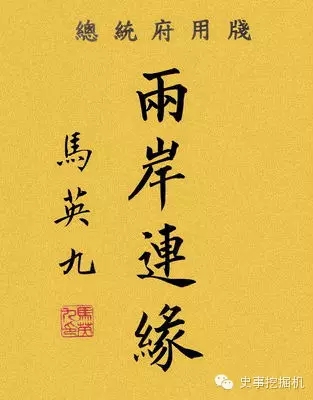 總統府用牋
兩岸連緣
馬英九
馬英九印
史事挖掘机